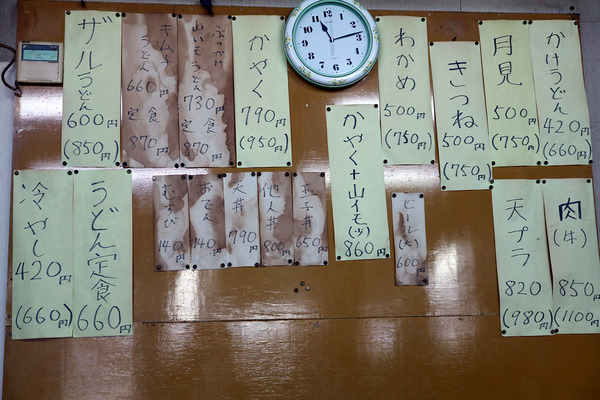 かけうどん
420円
(660円)
月見
500円
(750円)
きつね
500円
(750円)
わかめ
500円
(750円)
かやく
790円
(950円)
ぶっかけ
山いもうどん
730円
定食
870
キムチ
うどん
660円
定食
870
ザルうどん
600円
(850円)
肉
(牛)
850円
(1100円)
天プラ
820円
(980円)
ビール(大)
600円
かやく+山イモ(少)
860円
玉子丼
650円
他人丼
800円
天丼
790円
おでん
140円
むすび
140円
うどん定食
660円
冷やし
420円
(660円)
12
1
2
3
4
5
6
7
8
9
10
11